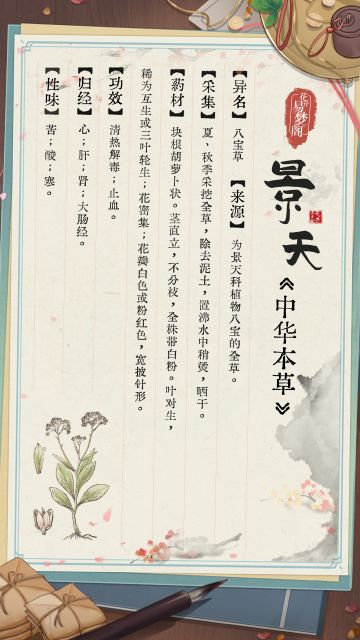 花亦山
易梦阁
景天
《中华本草》
【异名】八宝草【来源】为景天科植物八宝的全草。
【采集】夏、秋季采挖全草，除去泥土，置沸水中稍烫，晒干。
【药材】块根胡萝卜状。茎直立，不分枝，全株带白粉。叶对生，
稀为互生或三叶轮生；花密集；花瓣白色或粉红色，宽披针形。
【功效】清热解毒；止血。
【归经】心；肝；肾；大肠经。
【性味】苦；酸；寒。